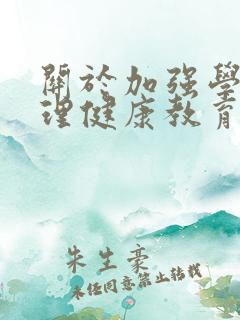 關於加强學
理健康教育
朱生豪
未经同意禁止转载